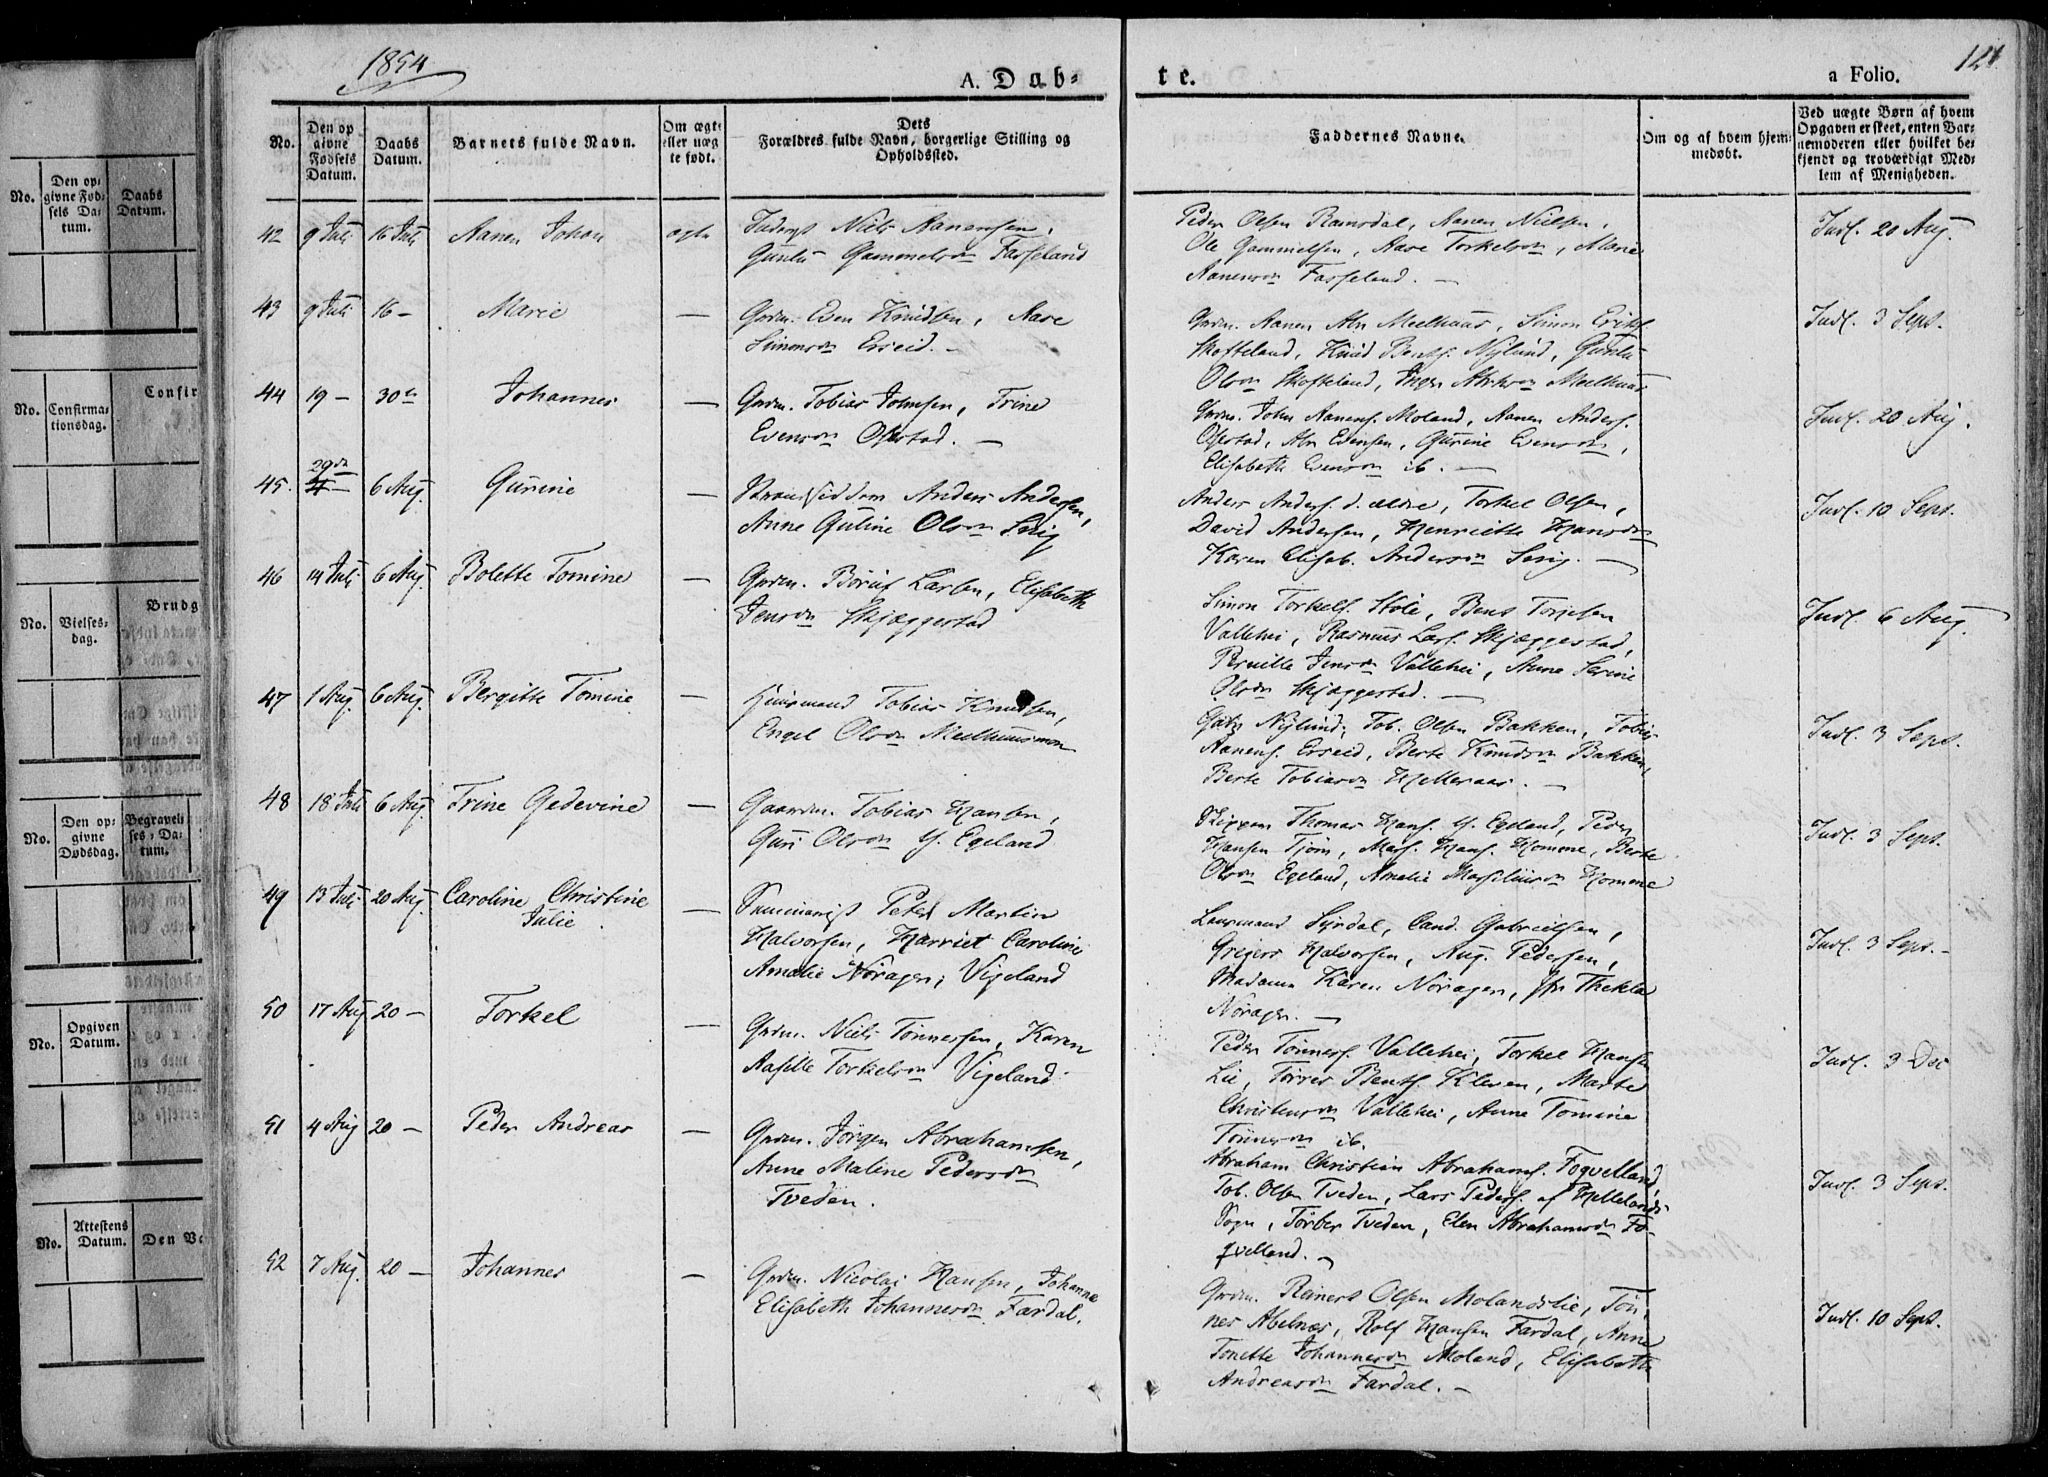 1854
A. Dab-
te.
a Folio.
No.
Den op
givne
Fødsels
Datum.
Daabs
Datum.
Barnets fulde Navn.
Om ægte
eller uæg
te født.
Dets
Forældres fulde Navn, borgerlige Stilling og
Opholdssted.
Faddernes Navne.
Om og af hvem hjem-
medøbt.
Ved uægte Børn af hvem
Opgaven er skeet, enten Bar-
nemoderen eller hvilket be-
kjendt og troværdigt Med-
lem af Menigheden.
42 9 Juli 16 Juli Aanen Johan ægte
Niels Aanensen,
Guntu Gammelsdn Fasseland
Peder Olsen Ramsdal, Aanen Nielsen,
Ole Gammelsen, Aase Torkelsdn, Marie
Aanensdn Fasseland. —
Indl. 20 Aug.
43 9 Juli 16 — Marie —
Grdm. Even Knudsen, Aase
Simonsdn Erseid. —
Grdm. Aanen Abr Meelhuus, Simon Eriks.
Skofteland, Knud Bents. Nylund, Guntu
Olsdn Skofteland, Inger Abrahsdn Meelhuus
Indl. 3 Sept.
44 19 — 30te Johannes —
Grdm. Tobias Johnsen, Trine
Evensdn Ofstad. —
Grdm. John Aanens. Moland, Aanen Anders.
Ofstad, Abr Evensen, Gurine Evensdn,
Elisabeth Evensdn ib. —
Indl. 20 Aug.
45. 29de 6 Aug. Gurine —
Strandsidder Anders Andersen,
Anne Guline Olsdn Snig
Anders Anders. d. ældre, Torkel Olsen,
David Andersen, Henriette Hansdn
Karen Elisab. Andersdn Snig. —
Indl. 10 Sept.
46 14 Juli 6 Aug. Bolette Tomine —
Grdm. Børuf Larsen, Elisabeth
Jensdn Skjæggestad
Simon Torkels. Stole, Bent Torjesen
Vallehei, Rasmus Lars. Skjæggestad,
Pernille Jensdn Vallehei, Anne Serine
Olsdn Skjæggestad. —
Indl. 6 Aug.
47 1 Aug. 6 Aug. Bergitte Tomine —
Huusmand Tobias Knudsen,
Engel Olsdn Meelhuusmoen
Nylund, Tob. Olsen Bakken, Tobias
Aanens. Erseid, Berte Knudsdn Bakken,
Berte Tobiasdn Helleraas. —
Indl. 3 Sept.
48 18 Juli 6 Aug. Trine Gedevine —
Gaardm. Tobias Hansen,
Guri Olsdn Y. Egeland
Skipper Thomas Hans. Y. Egeland, Peder
Hansen Tjom, Mars. Hans. Homme, Berte
Olsdn Egeland, Amalie Marseliusdn Homme
Indl. 3 Sept.
49 13 Juli 20 Aug. Caroline Christine
Julie —
Seminarist Peter Martin
Halvorsen, Harriet Caroline
Amalie Nøragen, Vigeland
Lensmand Syrdal, Cand. Gabrielsen,
Grejers Halvorsen, Aug. Pedersen,
Madame Karen Nøragen, Jfr Thekla
Nøragen. —
Indl. 3 Sept. —
50 17 Aug 20 — Torkel —
Grdm. Niels Tønnessen, Karen
Aasille Torkelsdn Vigeland
Peder Tønnes. Vallehei, Torkel Hansen
Lie, Torres Bents. Kleven, Marte
Christensdn Vallehei, Anne Tomine
Tønnesdn ib.
Indl. 3 Dec
51 4 Aug 20 — Peder Andreas —
Grdm. Jørgen Abrahamsen,
Anne Maline Pedersdn
Tveden.
Abraham Christian Abrahams. Foqvelland,
Tob. Olsen Tveden, Lars Peders. af Hellelands
Sogn, Torber Tveden, Elen Abrahamsdn Fo-
qvelland. —
Indl. 3 Sept.
52 7 Aug. 20 — Johannes —
Grdm. Nicolai Hansen, Johanne
Elisabeth Johannesdn Fardal.
Grdm. Reinert Olsen Molandslie, Tøn-
nes Abelnæs, Rolf Hansen Fardal, Anne
Tonette Johannesdn Moland, Elisabeth
Andreasdn Fardal. —
Indl. 10 Sept.
No.
Den op-
givne Fød-
sels Da-
tum.
Daabs
Datum.
No.
Confirma-
tionsdag.
Confir
No.
Vielses-
dag.
Brudg
No.
Den op-
givne
Dødsdag.
Begravel-
ses-Da-
tum.
No.
Opgiven
Datum.
No.
Attestens
Datum.
Den Va